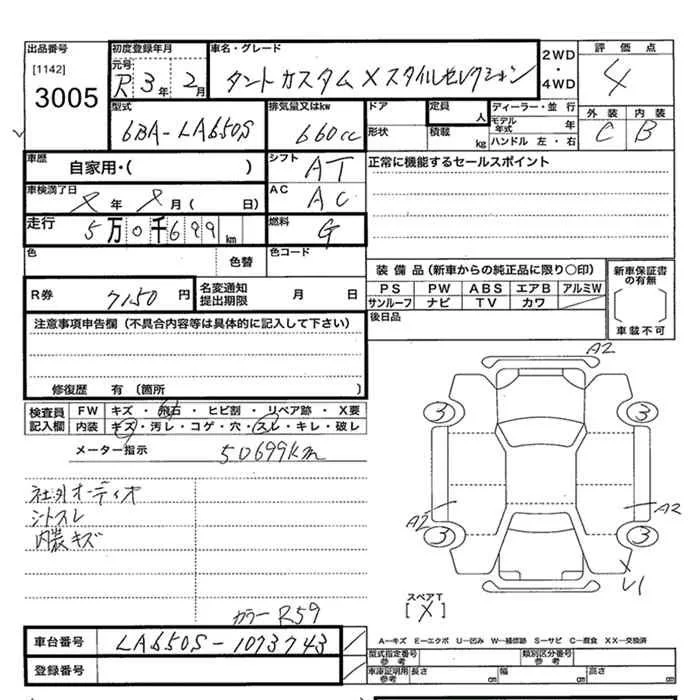 出品番号 初度登録年月 車名・グレード 2WD・4WD 評価点
[1142] 元号 R 3年 2月 タントカスタム X スタイルセレクション 4
3005
型式 排気量又はkw ドア 定員 人 ディーラー・並行 外装 内装
6BA-LA650S 660cc 形状 積載 kg モデル年式 年 C B
ハンドル 左・右
車歴 シフト 正常に機能するセールスポイント
自家用・( ) AT
車検満了日 AC
X 年 X 月 ( 日) AC
走行 燃料
5万0千699km G
色 色替 色コード
装備品(新車からの純正品に限り○印) 新車保証書の有無
R券 7150 円 名変通知提出期限 月 日 PS PW ABS エアB アルミW
サンルーフ ナビ TV カワ
注意事項申告欄(不具合内容等は具体的に記入して下さい) 後日品 車載不可
修復歴 有 (箇所 )
検査員記入欄 FW キズ・飛石・ヒビ割・リペア跡・X要
内装 キズ・汚レ・コゲ・穴・スレ・キレ・破レ
メーター指示 50699km
社外オーディオ
シートスレ
内装キズ
カラー R59
A2
3 3
A2 A2
3 3
スペアT
[X]
車台番号 LA650S-1073743
登録番号
A―キズ E―エクボ U―凹み W―補修跡 S―サビ C―腐食 XX―交換済
型式指定番号 参考 類別区分番号 参考
車庫証明用 参考 長さ cm 幅 cm 高さ cm